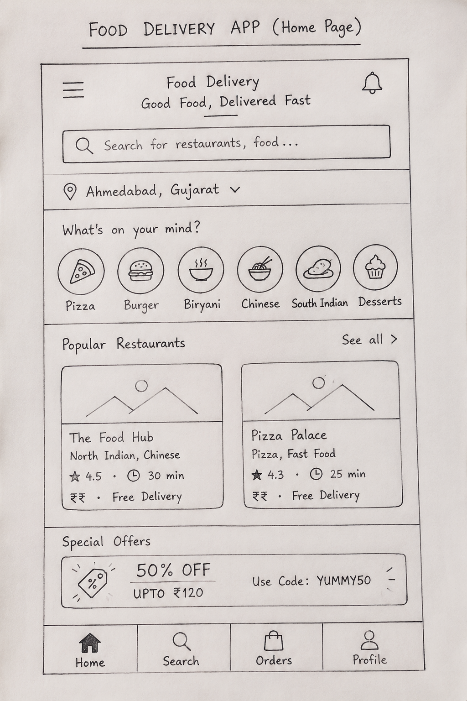 FOOD DELIVERY APP (Home Page)
Food Delivery
Good Food, Delivered Fast
Search for restaurants, food...
Ahmedabad, Gujarat
What's on your mind?
Pizza Burger Biryani Chinese South Indian Desserts
Popular Restaurants See all >
The Food Hub
North Indian, Chinese
★ 4.5 · 30 min
₹₹ · Free Delivery
Pizza Palace
Pizza, Fast Food
★ 4.3 · 25 min
₹₹ · Free Delivery
Special Offers
%
50% OFF
UPTO ₹120
Use Code: YUMMY50
Home Search Orders Profile